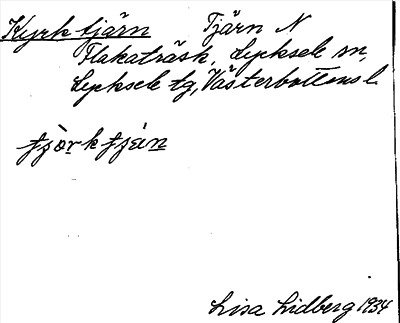 Kyrktjärn Tjärn N
Flakaträsk, Lycksele sn,
Lycksele tg, Västerbottens l.
tjòrktjän
Lisa Lidberg 1934